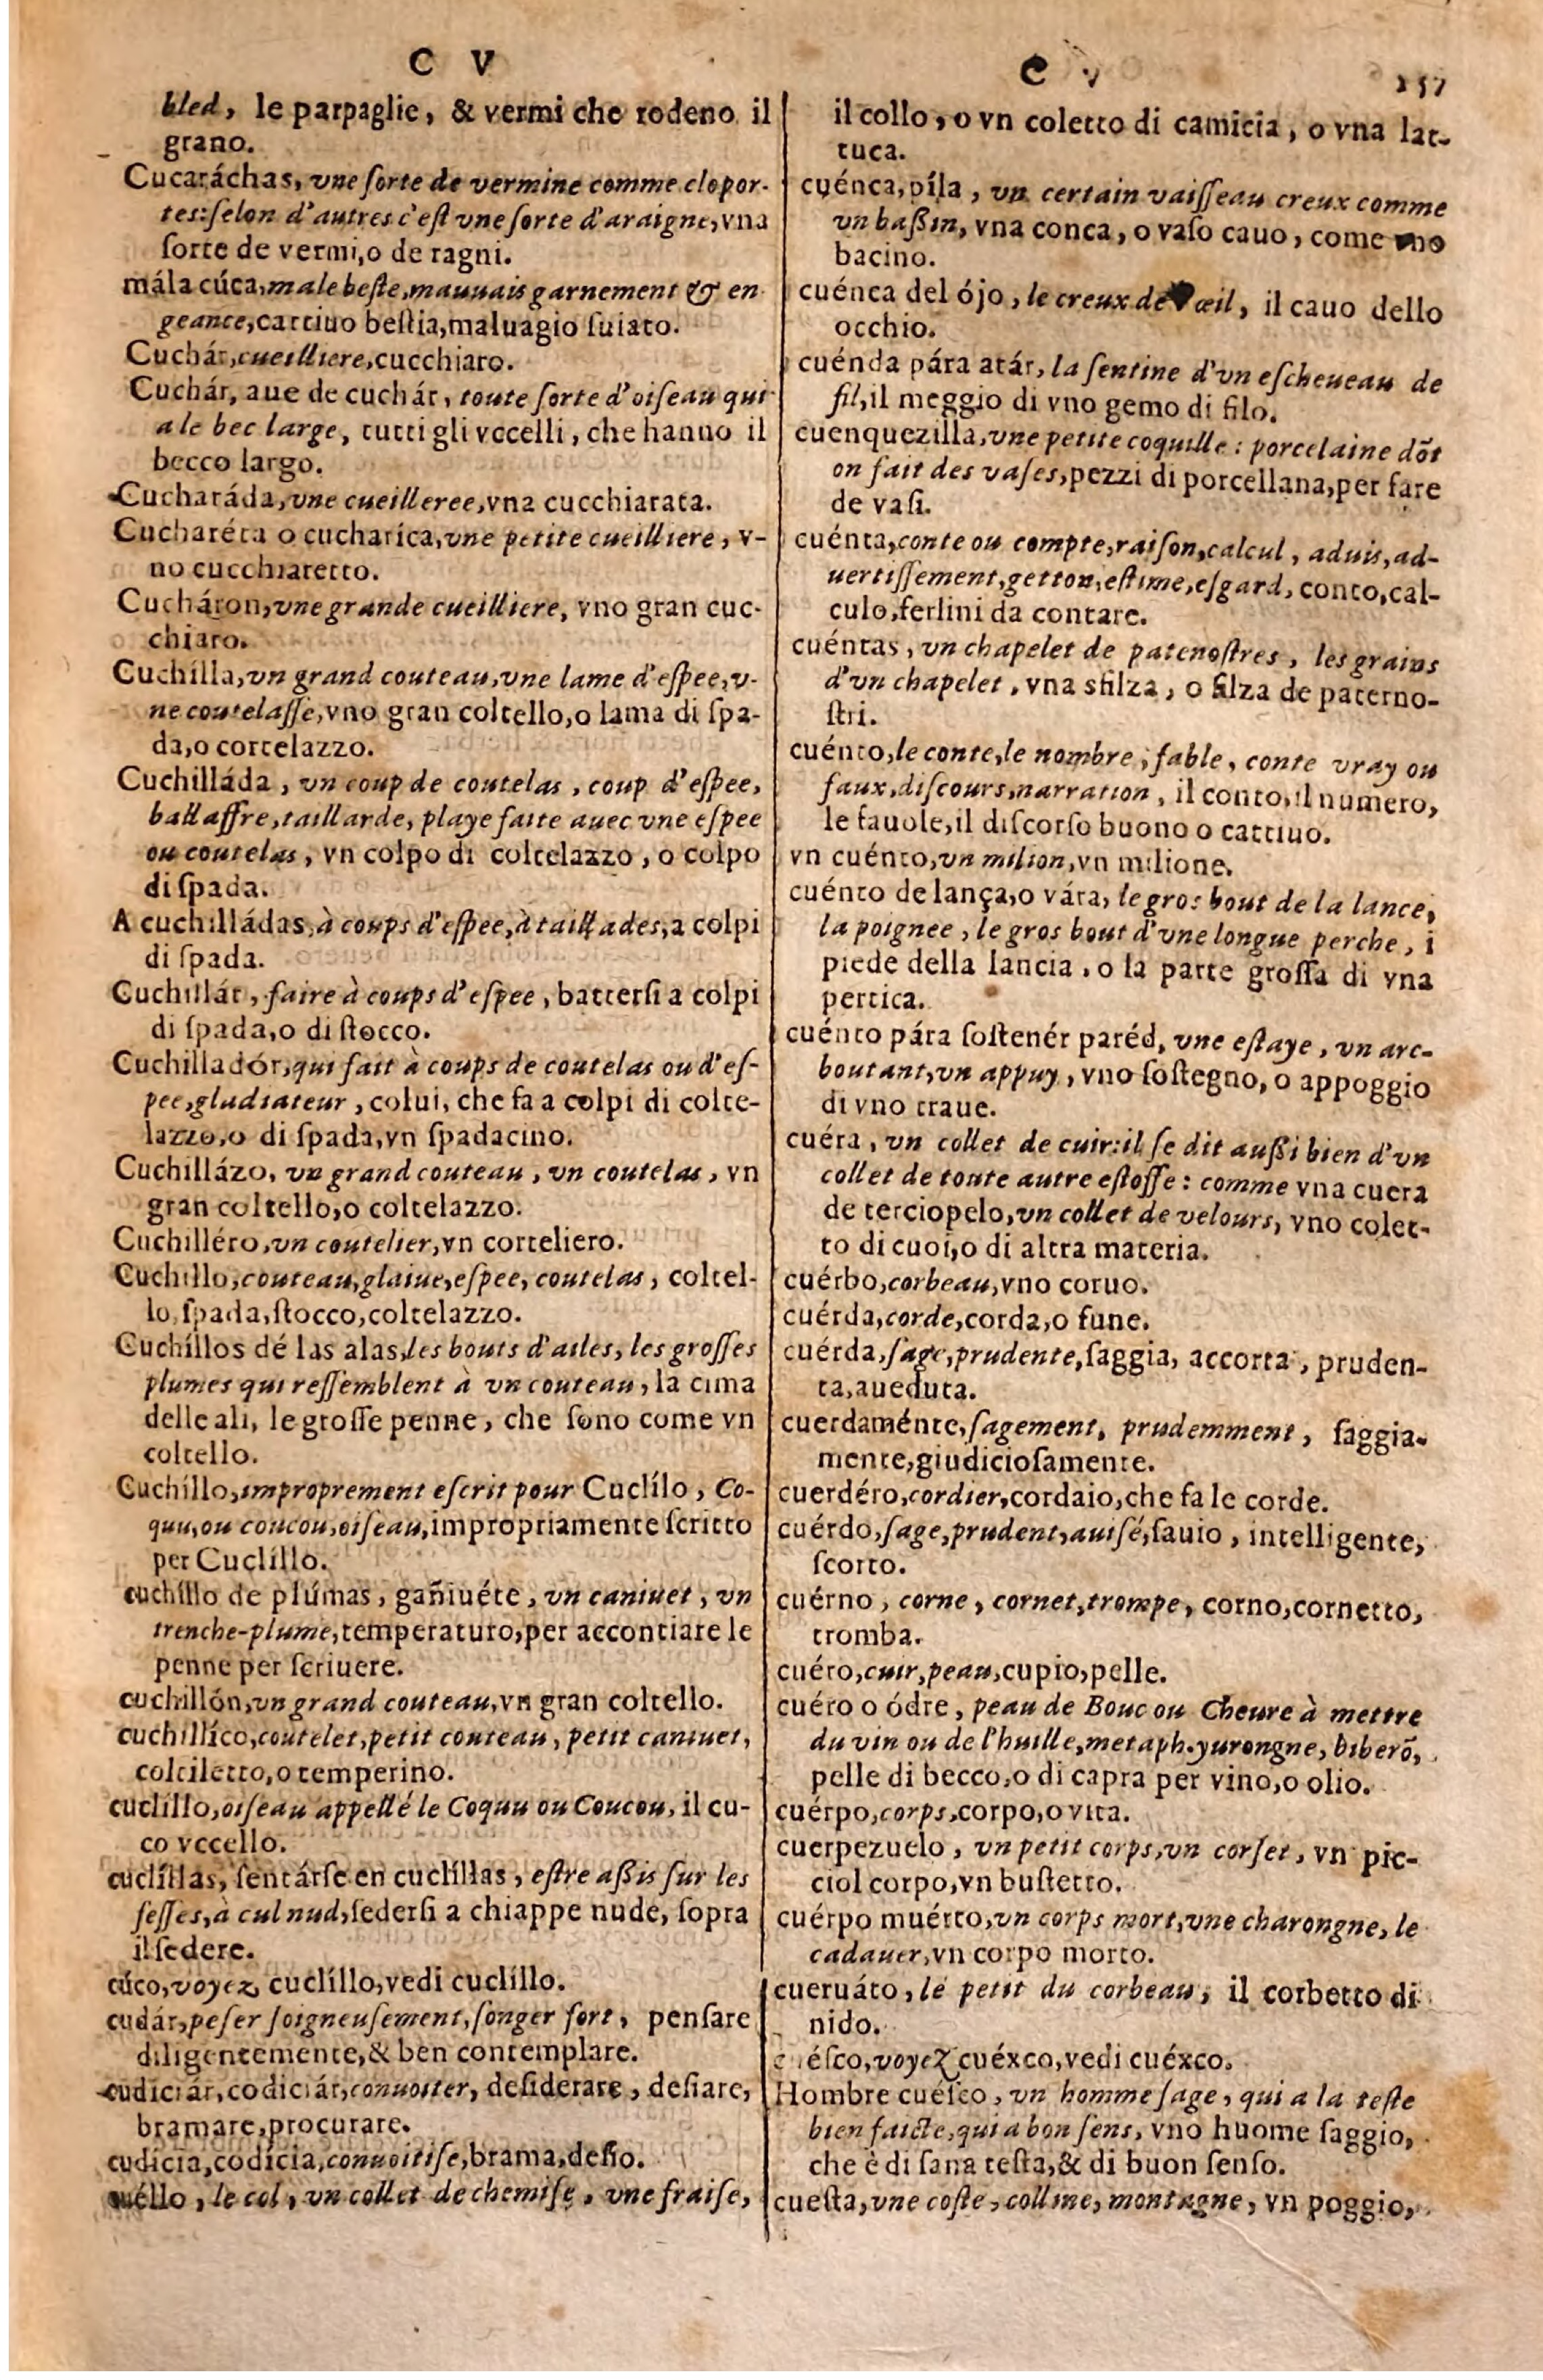 C V
bled, le parpaglie, & vermi che rodeno il
grano.
Cucaráchas, vne ſorte de vermine comme clopor-
tes: ſelon d'autres c'eſt vne ſorte d'araigne, vna
ſorte de vermi, o de ragni.
mála cúca, male beſte, mauuais garnement & en
geance, cattiuo beſtia, maluagio ſuiato.
Cuchár, cueilliere, cucchiaro.
Cuchár, aue de cuchár, toute ſorte d'oiſeau qui
a le bec large, tutti gli vccelli, che hanno il
becco largo.
Cucharáda, vne cueilleree, vna cucchiarata.
Cucharéta o cucharíca, vne petite cueilliere, v-
no cucchiaretto.
Cucháron, vne grande cueilliere, vno gran cuc-
chiaro.
Cuchílla, vn grand couteau, vne lame d'eſpee, v-
ne coutelaſſe, vno gran coltello, o lama di ſpa-
da, o cortelazzo.
Cuchilláda, vn coup de coutelas, coup d'eſpee,
ballaffre, taillarde, playe faite auec vne eſpee
ou coutelas, vn colpo di coltelazzo, o colpo
di ſpada.
A cuchilládas, à coups d'eſpee, à taillades, a colpi
di ſpada.
Cuchillár, faire à coups d'eſpee, batterſi a colpi
di ſpada, o di ſtocco.
Cuchilladór, qui fait à coups de coutelas ou d'eſ-
pee, gladiateur, colui, che fa a colpi di colte-
lazzo, o di ſpada, vn ſpadacino.
Cuchillázo, vn grand couteau, vn coutelas, vn
gran coltello, o coltelazzo.
Cuchilléro, vn coutelier, vn corteliero.
Cuchillo, couteau, glaiue, eſpee, coutelas, coltel-
lo, ſpada, ſtocco, coltelazzo.
Cuchíllos dé las alas, les bouts d'ailes, les groſſes
plumes qui reſſemblent à vn couteau, la cima
delle ali, le groſſe penne, che ſono come vn
coltello.
Cuchíllo, improprement eſcrit pour Cuclílo, Co-
quu, ou coucou, oiſeau, impropriamente ſcritto
per Cuclíllo.
cuchíllo de plúmas, gañiuéte, vn caniuet, vn
trenche-plume, temperaturo, per accontiare le
penne per ſcriuere.
cuchillón, vn grand couteau, vn gran coltello.
cuchillíco, coutelet, petit couteau, petit caniuet,
colciletto, o temperino.
cuclíllo, oiſeau appellé le Coquu ou Coucou, il cu-
co vccello.
cuclíllas, ſentárſe en cuclíllas, eſtre aßis ſur les
feſſes, à cul nud, ſederſi a chiappe nude, ſopra
il ſedere.
cúco, voyez cuclíllo, vedi cuclíllo.
cudár, peſer ſoigneuſement, ſonger fort, penſare
diligentemente, & ben contemplare.
cudiciár, codiciár, conuoiter, deſiderare, deſiare,
bramare, procurare.
cudícia, codícia, conuoitiſe, brama, deſio.
cuéllo, le col, vn collet de chemiſe, vne fraiſe,
C V 257
il collo, o vn coletto di camicia, o vna lat-
tuca.
cuénca, píla, vn certain vaiſſeau creux comme
vn baßin, vna conca, o vaſo cauo, come vno
bacino.
cuénca del ójo, le creux de l'œil, il cauo dello
occhio.
cuénda pára atár, la ſentine d'vn eſcheueau de
fil, il meggio di vno gemo di filo.
cuenquezilla, vne petite coquille: porcelaine dõt
on fait des vaſes, pezzi di porcellana, per fare
de vaſi.
cuénta, conte ou compte, raiſon, calcul, aduis, ad-
uertiſſement, getton, eſtime, eſgard, conto, cal-
culo, ferlini da contare.
cuéntas, vn chapelet de patenoſtres, les grains
d'vn chapelet, vna sfilza, o filza de paterno-
ſtri.
cuénto, le conte, le nombre, fable, conte vray ou
faux, diſcours, narration, il conto, il numero,
le fauole, il diſcorſo buono o cattiuo.
vn cuénto, vn milion, vn milione.
cuénto de lança, o vára, le gros bout de la lance,
la poignee, le gros bout d'vne longue perche, i
piede della lancia, o la parte groſſa di vna
pertica.
cuénto pára ſoſtenér paréd, vne eſtaye, vn arc-
boutant, vn appuy, vno ſoſtegno, o appoggio
di vno traue.
cuéra, vn collet de cuir: il ſe dit außi bien d'vn
collet de toute autre eſtoffe: comme vna cuera
de terciopelo, vn collet de velours, vno colet-
to di cuoi, o di altra materia.
cuérbo, corbeau, vno coruo.
cuérda, corde, corda, o fune.
cuérda, ſage, prudente, ſaggia, accorta, pruden-
ta, aueduta.
cuerdaménte, ſagement, prudemment, ſaggia-
mente, giudicioſamente.
cuerdéro, cordier, cordaio, che fa le corde.
cuérdo, ſage, prudent, auiſé, ſauio, intelligente,
ſcorto.
cuérno, corne, cornet, trompe, corno, cornetto,
tromba.
cuéro, cuir, peau, cupio, pelle.
cuéro o ódre, peau de Bouc ou Cheure à mettre
du vin ou de l'huille, metaph. yurongne, biberõ,
pelle di becco, o di capra per vino, o olio.
cuérpo, corps, corpo, o vita.
cuerpezuelo, vn petit corps, vn corſet, vn pic-
ciol corpo, vn buſtetto.
cuérpo muérto, vn corps mort, vne charongne, le
cadauer, vn corpo morto.
cueruáto, le petit du corbeau, il corbetto di
nido.
cuéſco, voyez cuéxco, vedi cuéxco.
Hombre cueſco, vn homme ſage, qui a la teſte
bien faicte, qui a bon ſens, vno huome ſaggio,
che è di ſana teſta, & di buon ſenſo.
cueſta, vne coſte, colline, montagne, vn poggio,